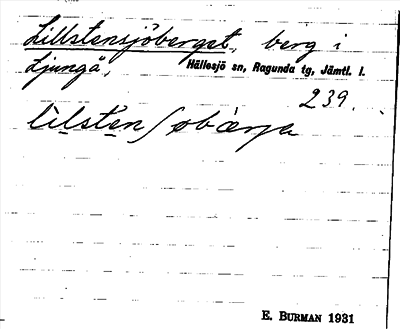 Lillstensjöberget, berg i
Ljungå,
Hällesjö sn, Ragunda tg, Jämtl. l.
239.
E. BURMAN 1931